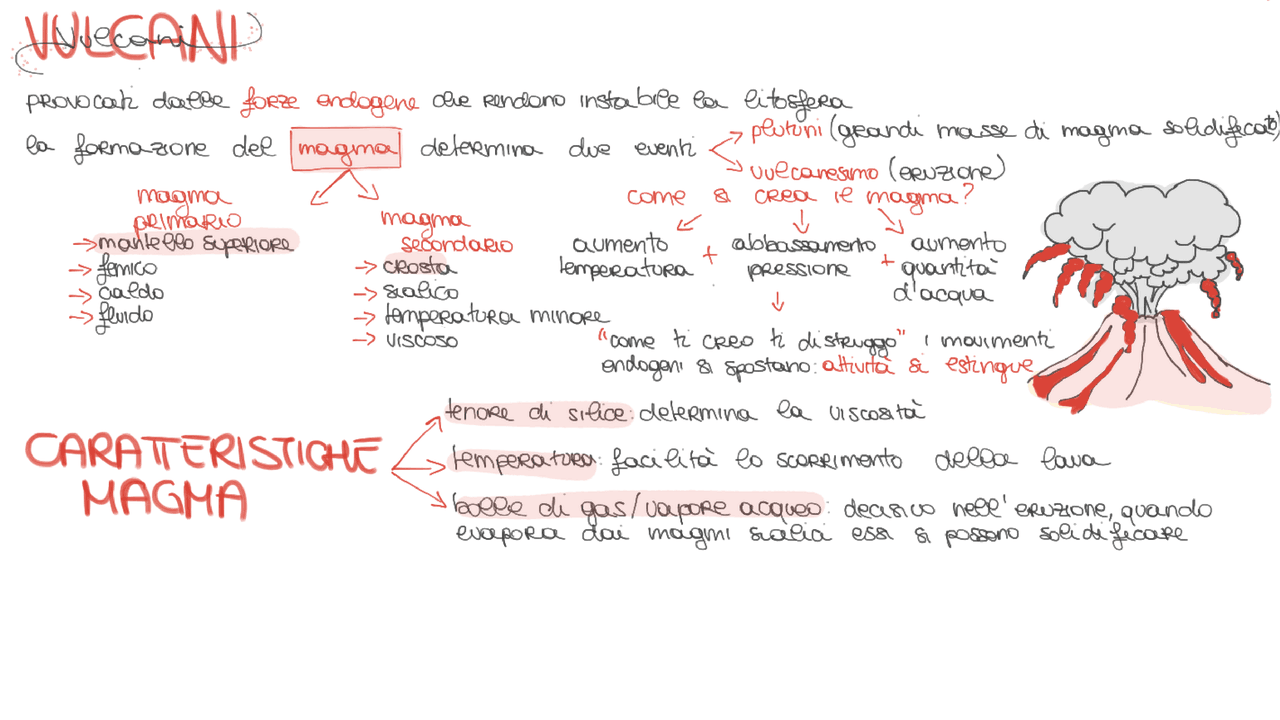 VULCANI
Vulcani
PROVOCATI dalle forze endogene che rendono instabile la litosfera
la formazione del magma determina due eventi
plutoni (grandi masse di magma solidificato)
vulcanesimo (eruzione)
magma
primario
mantello superiore
femico
caldo
fluido
magma
secondario
crosta
sialico
temperatura minore
viscoso
come si crea il magma?
aumento
temperatura
+
abbassamento
pressione
+
aumento
quantità
d'acqua
"come ti creo ti distruggo" i movimenti
endogeni si spostano: attività si estingue
CARATTERISTICHE
MAGMA
tenore di silice: determina la viscosità
temperatura: facilità lo scorrimento della lava
bolle di gas/vapore acqueo: decisivo nell'eruzione, quando
evapora dai magmi sialici essi si possono solidificare